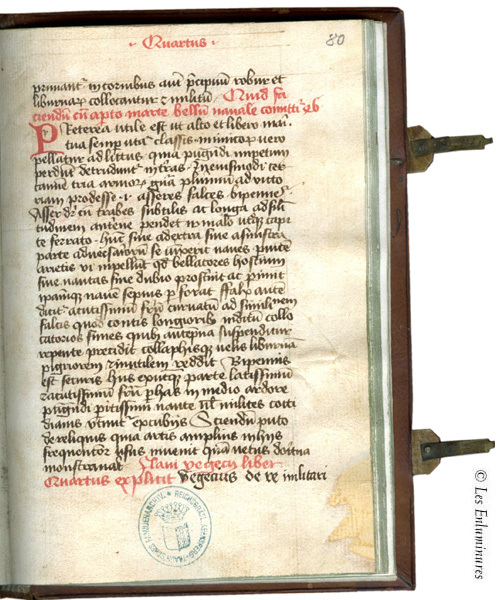 · Quartus ·
80
primant᷑ in cornibus aut͞ p͞cipuu͞ robur et
liburnar͞ collocantur ⁊ militu͞ Quid fa
ciendu͞ cu͞ ap͞to marte bellu͞ navale co͞mittit᷑
Preterea utile est ut alto et libero mari
tua semp͞ utat᷑ classis inimicor͞ vero
pellatur ad littus quia pugndi impetum
perdu͞t detrudunt᷑ in t͞ras
tamine tria armor͞ gn͞a plurimu͞ ad victo
riam prodesse ·i· asseres falces bipennes
Asser d͞r cu͞ trabes subtilis ac longa ad sili
tudinem antene pendet in malo utq͞ capi
te ferrato hu͞c sive a dextra sive a sinistra
parte adversarior͞ se iu͞xerit naves p͞ vice
arietis vi inpellit͞ qd͞ bellatores hostium
sive nautas sine dubio prosternit ac p͞imit
ipamq͞ nave͞ sepius p͞forat Falx aute͞
dicit᷑ acutissimu͞ ferr͞ curvatu͞ ad similinem
falcis quod contis longiorib͞ inditu͞ collo
catorios funes quib͞ antenna suspenditur
repente precidit collapsisq͞ velis liburna͞
pigriorem ⁊ inutilem reddit Bipennis
est securis h͞ns ex utraq͞ parte latissimu͞
⁊ acutissimu͞ ferr͞ p͞ has in medio ardore
pugndi
Sciendu͞ puto
de reliquis qua artis amplius in his
frequentior usus invenit qua͞ vetus doct͞na
monstrarat Flavi vegecii liber
Quartus explicit Vegecius de re militari
© Les Enluminures